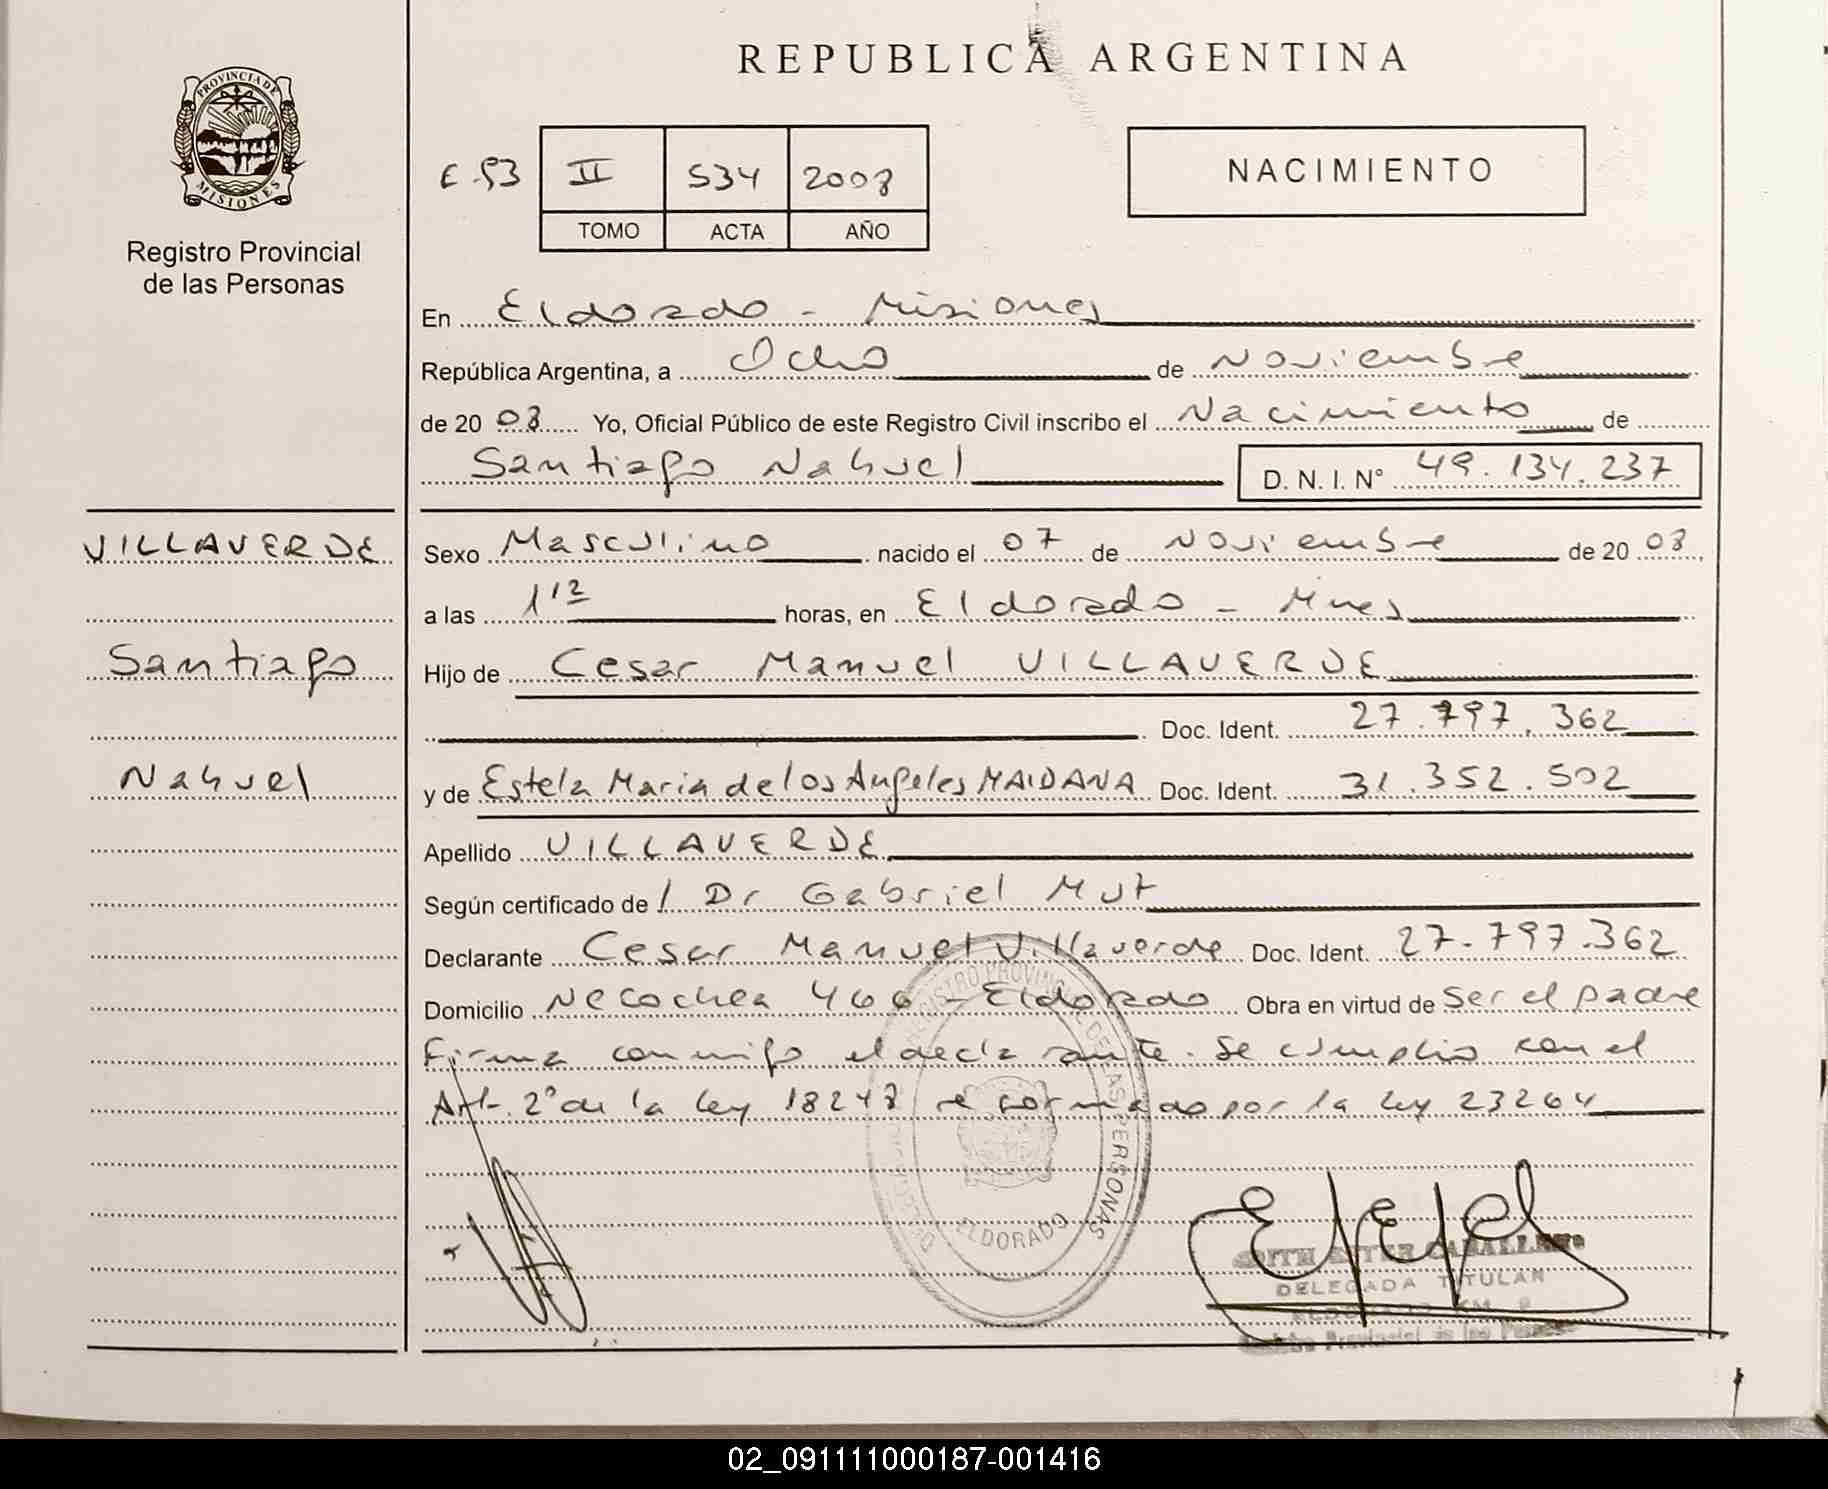 REPUBLICA ARGENTINA
PROVINCIA DE MISIONES
Registro Provincial
de las Personas
II 534 2008
TOMO ACTA AÑO
NACIMIENTO
En Eldorado - Misiones
República Argentina, a Ocho de Noviembre
de 2008 Yo, Oficial Público de este Registro Civil inscribo el Nacimiento de
Santiago Nahuel D. N. I. N° 49.134.237
VILLAVERDE
Santiago
Nahuel
Sexo Masculino nacido el 07 de Noviembre de 2008,
a las 1'12 horas, en Eldorado - Mnes
Hijo de Cesar Manuel VILLAVERDE
Doc. Ident. 27.797.362
y de Estela Maria de los Angeles MAIDANA Doc. Ident. 31.352.502
Apellido VILLAVERDE
Según certificado de Dr Gabriel Mut
Declarante Cesar Manuel Villaverde Doc. Ident. 27.797.362
Domicilio Necochea 466 - Eldorado Obra en virtud de Ser el padre
Firma conmigo el declarante. Se cumplio con el
Art. 2° de la Ley 18248 reformado por la Ley 23264
REGISTRO PROVINCIAL DE LAS PERSONAS
ELDORADO
CABALLERO
DELEGADA TITULAR
02_091111000187-001416